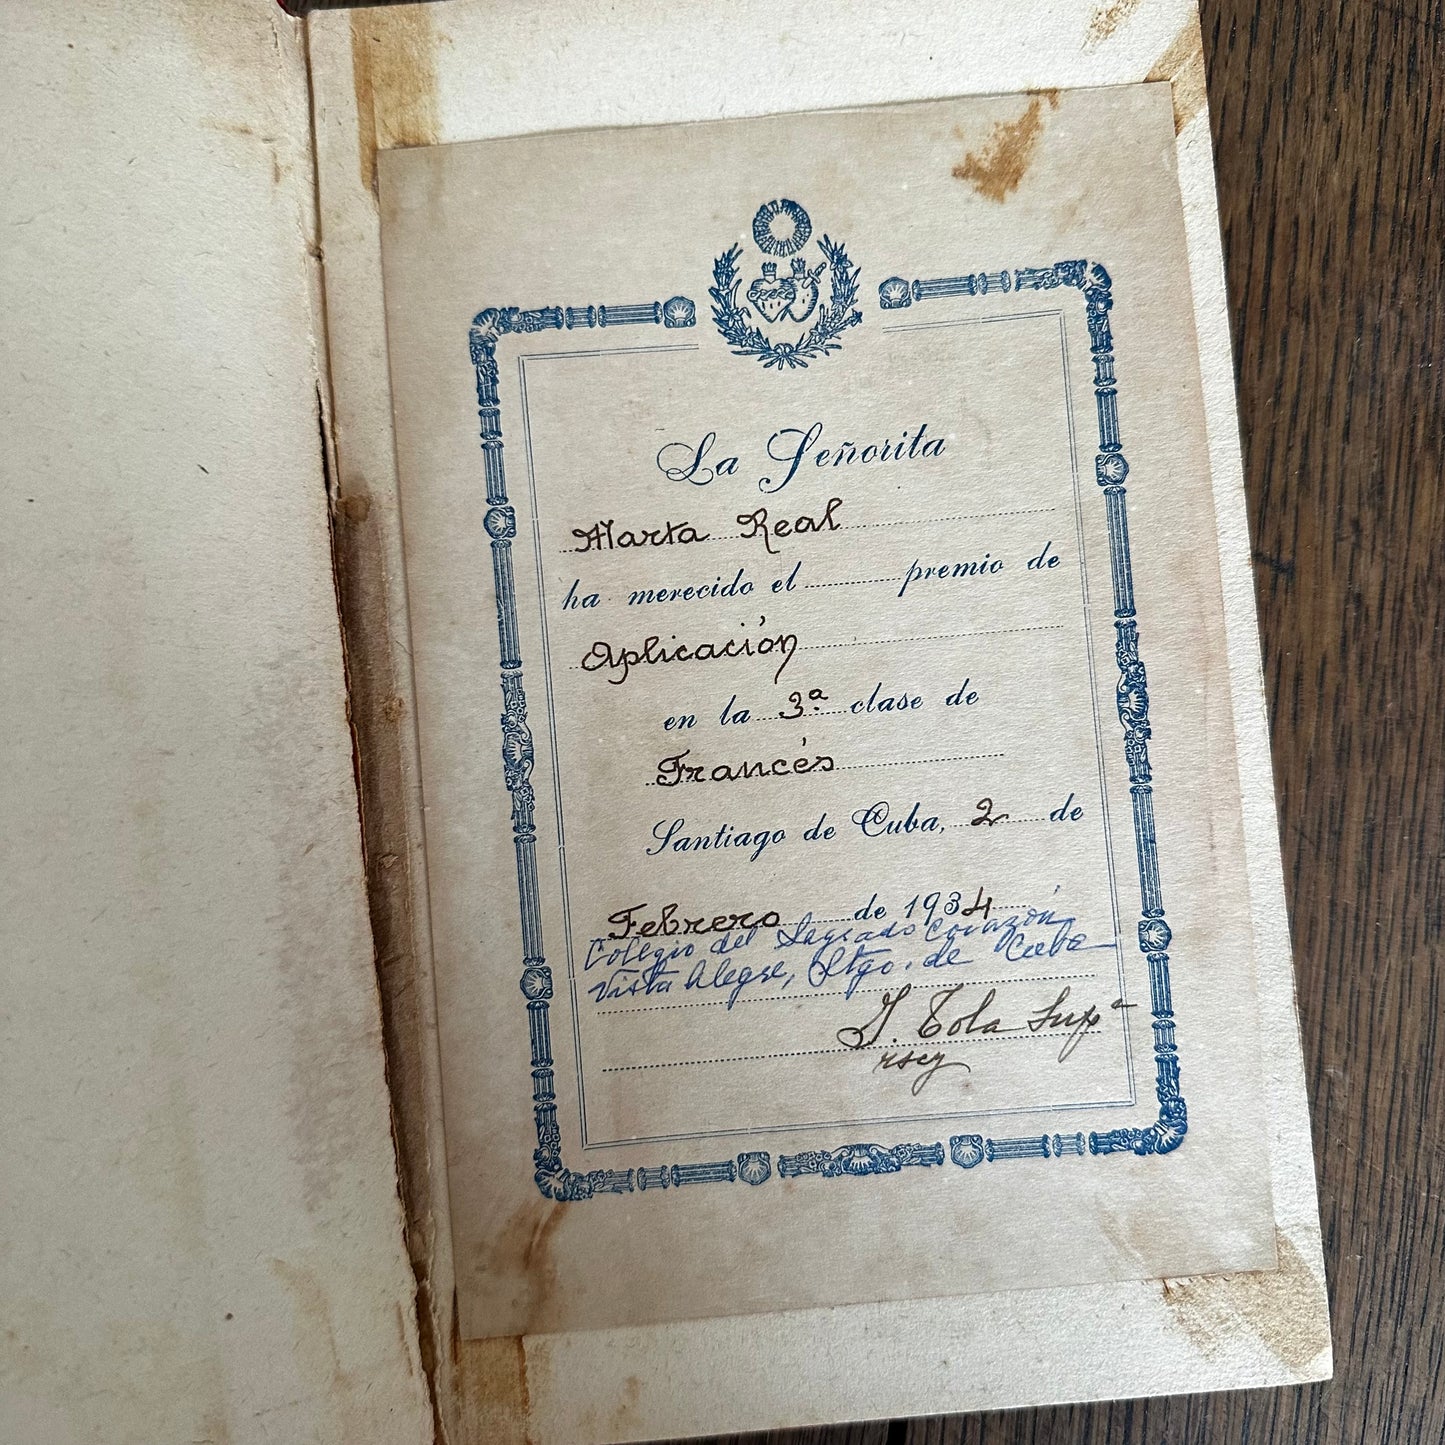 La Señorita
Marta Real
ha merecido el premio de
Aplicación
en la 3ª clase de
Francés
Santiago de Cuba, 2 de
Febrero de 1934
Colegio del Sagrado Corazón
Vista Alegre, Stgo. de Cuba
Tola Supª
rscj